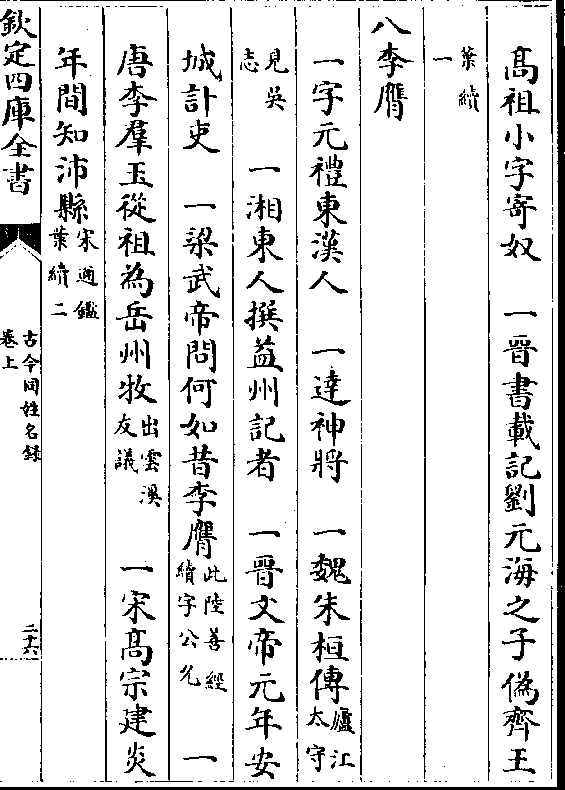 髙祖小字寄奴　一晉書載記劉元海之子偽齊王
葉續一
八李膺
一字元禮東漢人　一達神將　一魏朱桓傳廬江太守
見吳志　一湘東人撰益州記者　一晉文帝元年安
城計吏　一梁武帝問何如昔李膺此陸善經續字公允　一
唐李羣玉從祖為岳州牧出雲溪友議　一宋髙宗建炎
年間知沛縣宋通鑑葉續二
欽定四庫全書
古今同姓名録
卷上
二十六